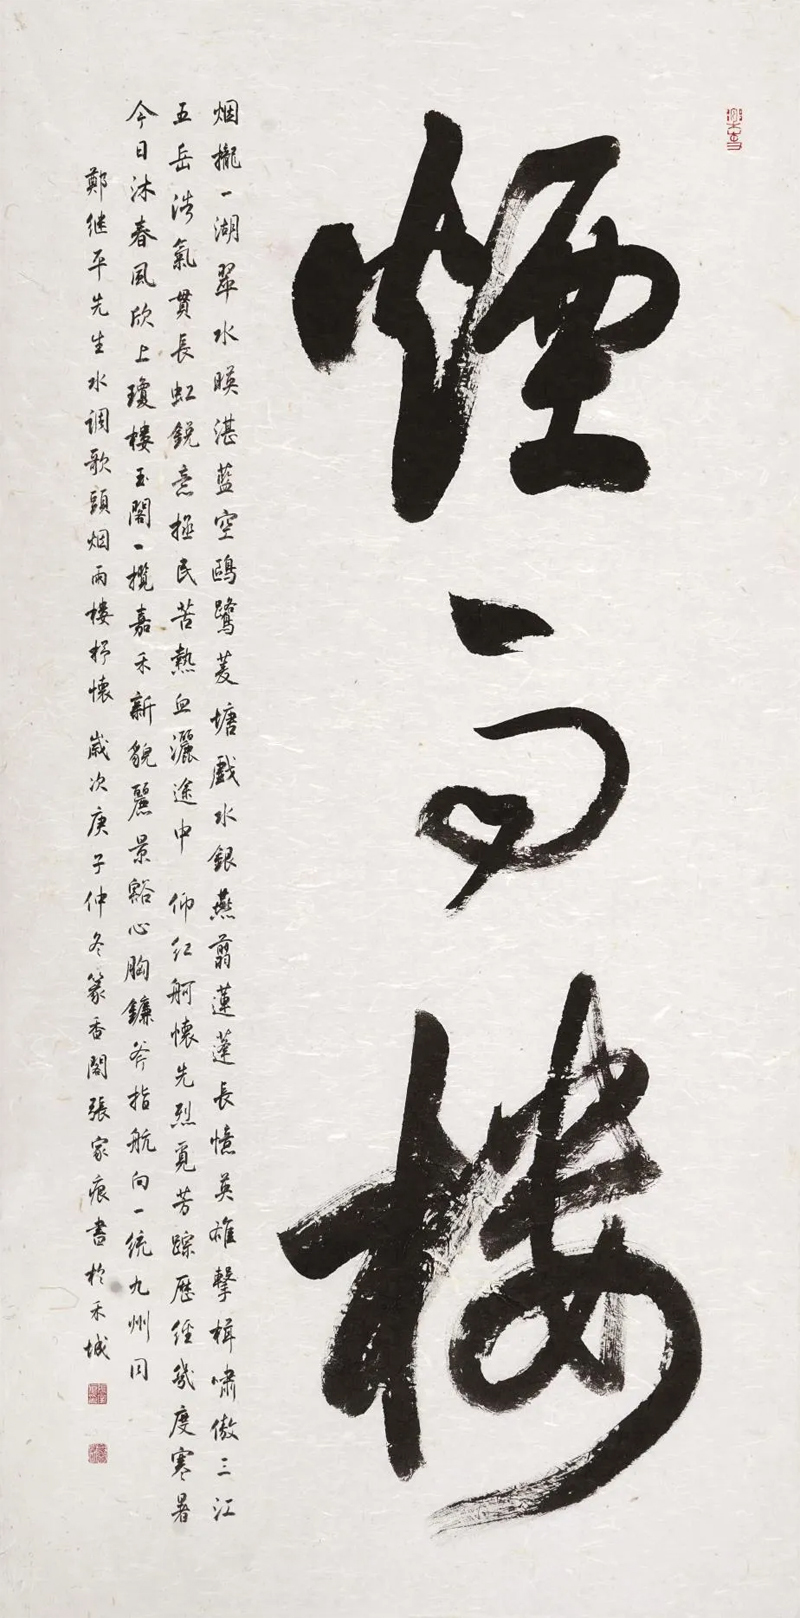 煙雨楼
烟攏一湖翠水暎湛藍空鷗鷺菱塘戲水銀燕翦蓮蓬長憶英雄擊楫嘯傲三江
五岳浩氣貫長虹銳意拯民苦熱血灑途中 仰红舸懷先烈覓芳踪歷经幾度寒暑
今日沐春風欣上瓊楼玉閣一攬嘉禾新貌麗景豁心胸鐮斧指航向一统九州同
鄭继平先生水调歌頭烟雨楼抒懷 歲次庚子仲冬篆香閣張家痕書於禾城